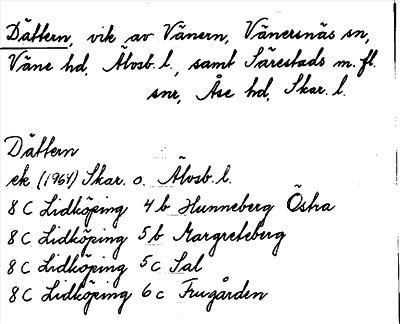 Dättern, vik av Vänern, Vänersnäs sn,
Väne hd, Älvsb. l., samt Särestads m. fl.
snr, Åse hd, Skar. l.
Dättern
ek (1964) Skar. o. Älvsb. l.
8 C Lidköping 4 b Hunneberg Östra
8 C Lidköping 5 b Margreteberg
8 C Lidköping 5 c Sal
8 C Lidköping 6 c Frugården